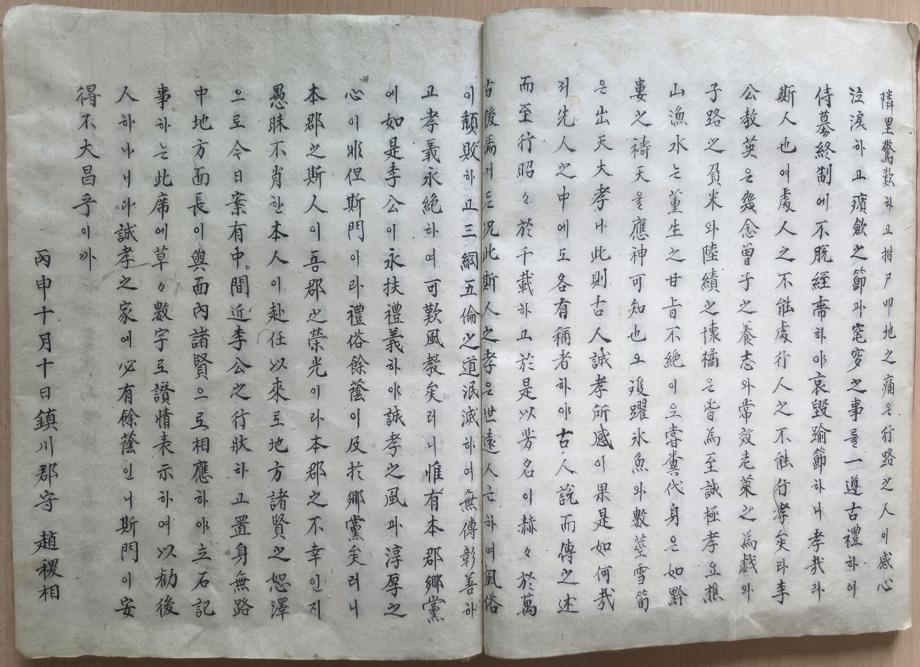 隣里驚歎하고拊尸叩地之痛은行路之人이感心
泣淚하고殯斂之節과窀穸之事를一遵古禮하여
侍墓終制에不脫絰帶하야哀毀踰節하니孝哉라
斯人也여處人之不能處行人之不能行孝矣라李
公敎英은幾念曾子之養志와常效老萊之為戱와
子路之負米와陸績之懷橘은皆為至誠極孝요想
山漁水는董生之甘旨不絶이요嘗糞代身은如黔
婁之禱天을應神可知也요復躍氷魚와數莖雪筍
은出天大孝나此則古人誠孝所感이果是如何哉
저先人之中에도各有稱者하야古人說而傳之述
而至行昭々於千載하고於是以芳名이赫々於萬
古後儒어든況此斯人之孝은世遠人亡하여風俗
이頹敗하고三綱五倫之道泯滅하여無傳彰善하
고孝義永絶하여可歎風敎矣러니惟有本郡鄕黨
에如是李公이永扶禮義하야誠孝之風과淳厚之
心이非但斯門이라禮俗餘蔭이及於鄕黨矣러니
本郡之斯人이吾郡之榮光이라本郡之不幸인지
愚昧不肖한本人이赴任以來로地方諸賢之恕澤
으로今日案有中間近李公之行狀하고置身無路
中地方面長이與面內諸賢으로相應하야立石記
事하는此席에草々數字로讚情表示하여以勸後
人하나니라誠孝之家에必有餘蔭인니斯門이安
得不大昌乎이까
丙申十月十日鎭川郡守 趙稷相